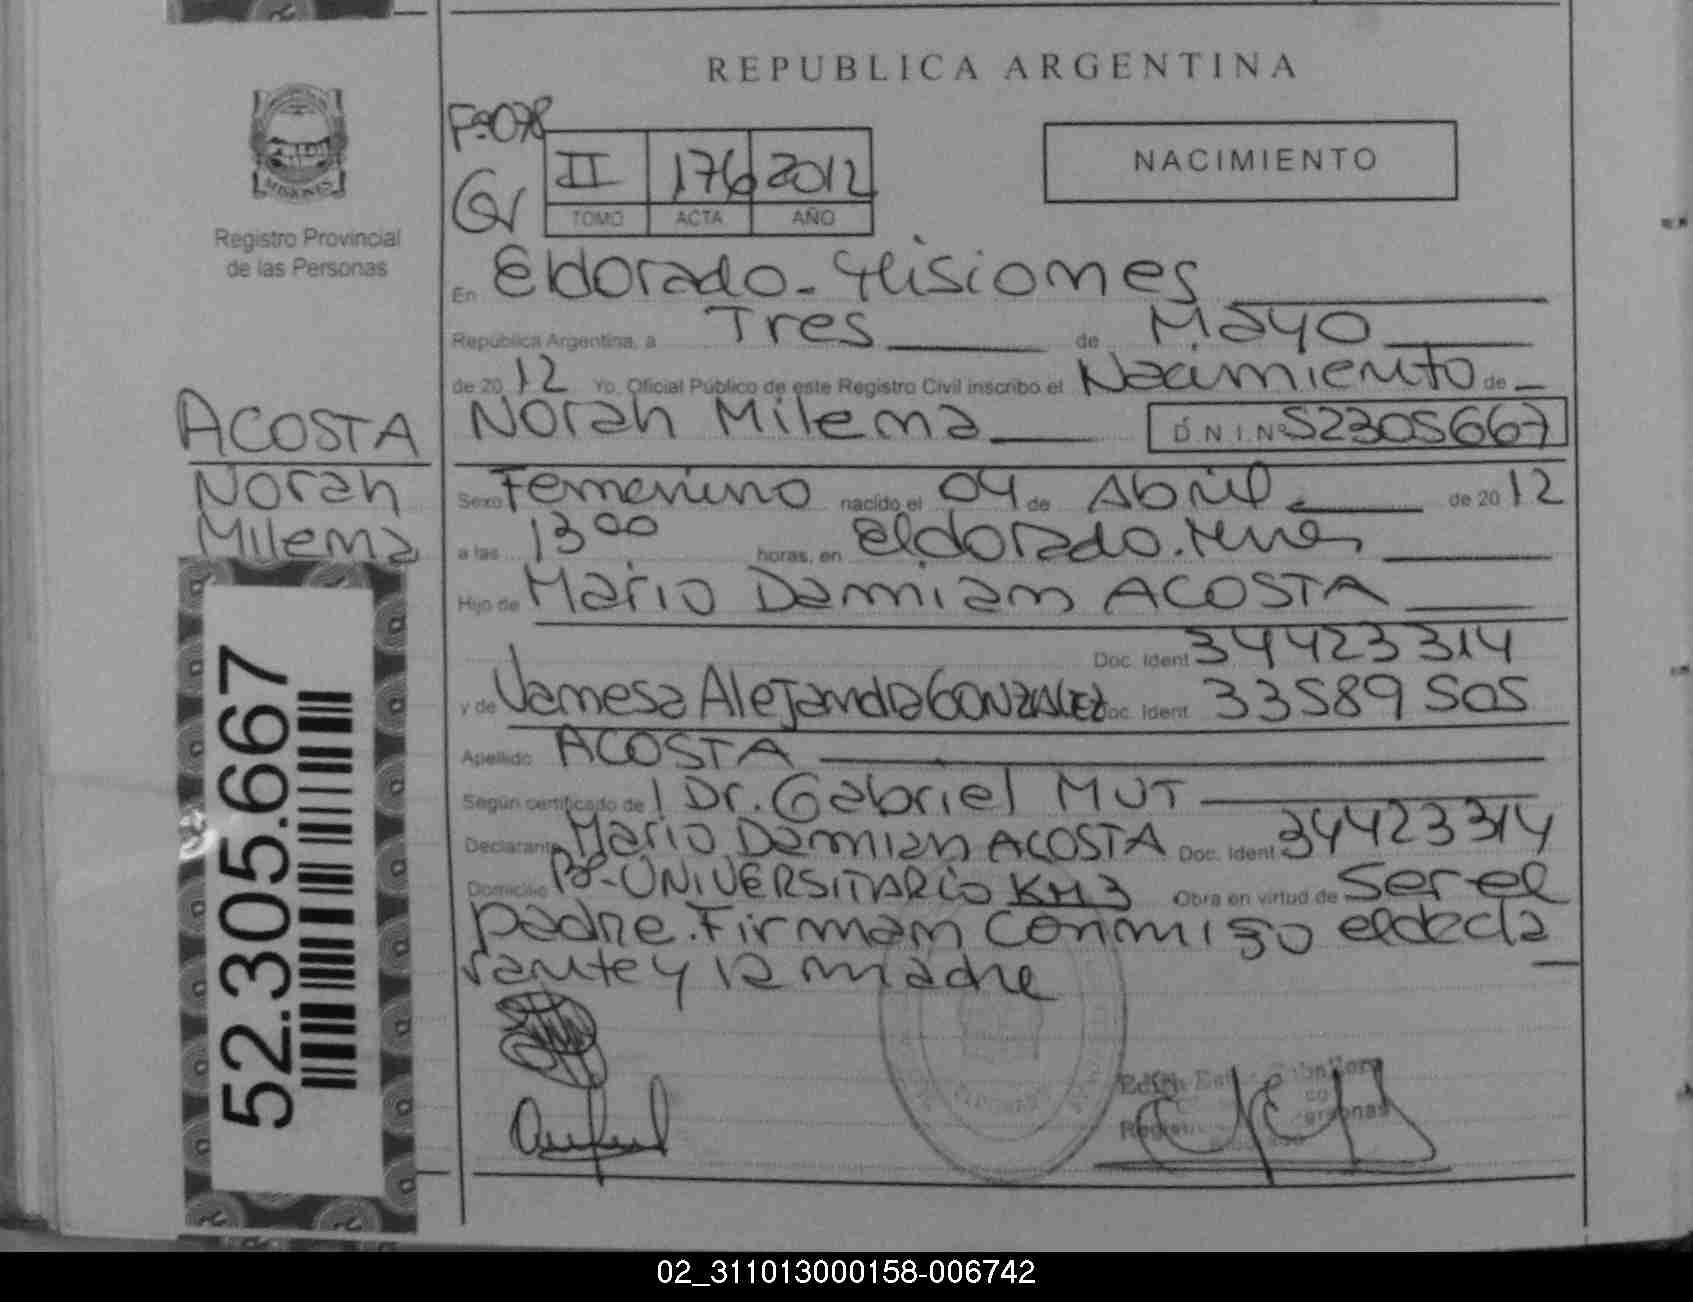 REPUBLICA ARGENTINA
MISIONES
Registro Provincial
de las Personas
Fº078
II 176 2012
TOMO ACTA AÑO
NACIMIENTO
En Eldorado - Misiones
República Argentina, a Tres de Mayo
de 2012 Yo, Oficial Público de este Registro Civil inscribo el Nacimiento de
Norah Milena D N I Nº 52305667
ACOSTA
Norah
Milena
Sexo Femenino nacido el 04 de Abril de 2012
a las 13 00 horas, en eldorado. Mnes
Hijo de Mario Damian ACOSTA
Doc. Ident 34423314
y de Vanesa Alejandra GONZALEZ Doc. Ident 33589505
Apellido ACOSTA
Según certificado de l Dr. Gabriel MUT
Declarante Mario Damian ACOSTA Doc. Ident 34423314
Domicilio Bº-UNIVERSITARIO KM3 Obra en virtud de Ser el
padre. Firman conmigo el decla
rante y la madre
52.305.667
02_311013000158-006742